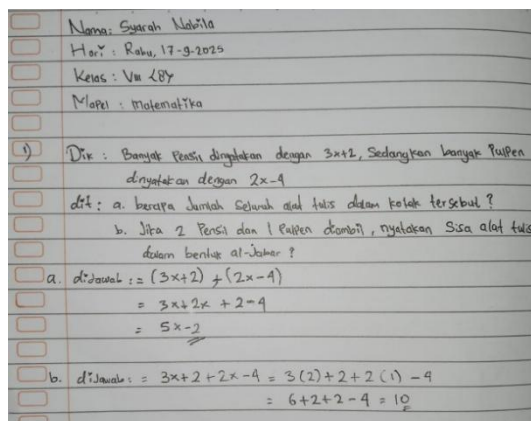 Nama: Syarah Nabila
Hari : Rabu, 17-9-2025
Kelas : VIII <8>
Mapel : matematika
1) Dik : Banyak Pensil dinyatakan dengan 3x+2, Sedangkan banyak Pulpen
dinyatakan dengan 2x-4
dit : a. berapa Jumlah Seluruh alat tulis dalam kotak tersebut ?
b. Jika 2 Pensil dan 1 Pulpen diambil, nyatakan Sisa alat tulis
dalam bentuk al-Jabar ?
a. diJawab : = (3x+2) + (2x-4)
= 3x+2x + 2-4
= 5x-2
b. diJawab : = 3x+2+2x-4 = 3(2)+2+2(1)-4
= 6+2+2-4 = 10